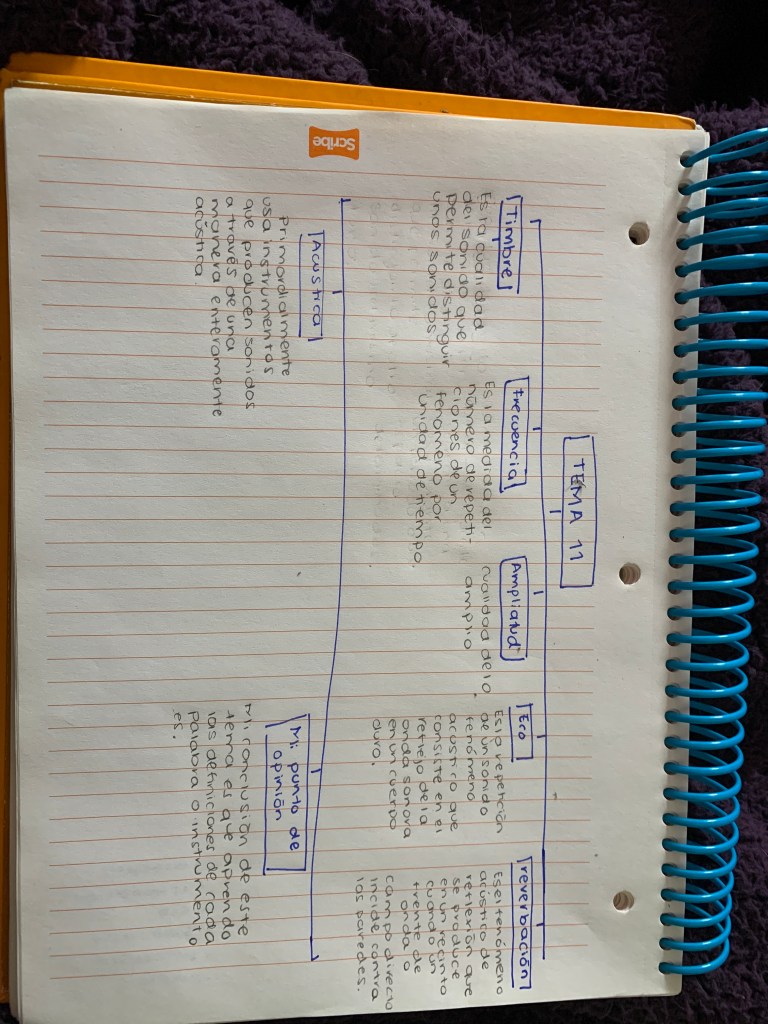 Scribe
TEMA 11
Timbre
Es la cualidad
del sonido que
permite distinguir
unos sonidos
frecuencia
Es la medida del
número de repeti-
ciones de un
fenomeno por
unidad de tiempo.
Ampliatud
cualidad de lo
amplio
Eco
Es la repetición
de un sonido
fenómeno
acustico que
consiste en el
reflejo de la
onda sonora
en un cuerpo
duro.
reverbación
Es el fenómeno
acústico de
reflexión que
se produce
en un recinto
cuando un
frente de
onda o
campo directo
incide contra
las paredes.
Acustica
primordialmente
usa instrumentos
que producen sonidos
a través de una
manera enteramente
acústica.
Mi punto de
opinión
Mi conclusión de este
tema es que aprendo
las definiciones de cada
palabra o instrumento
es.